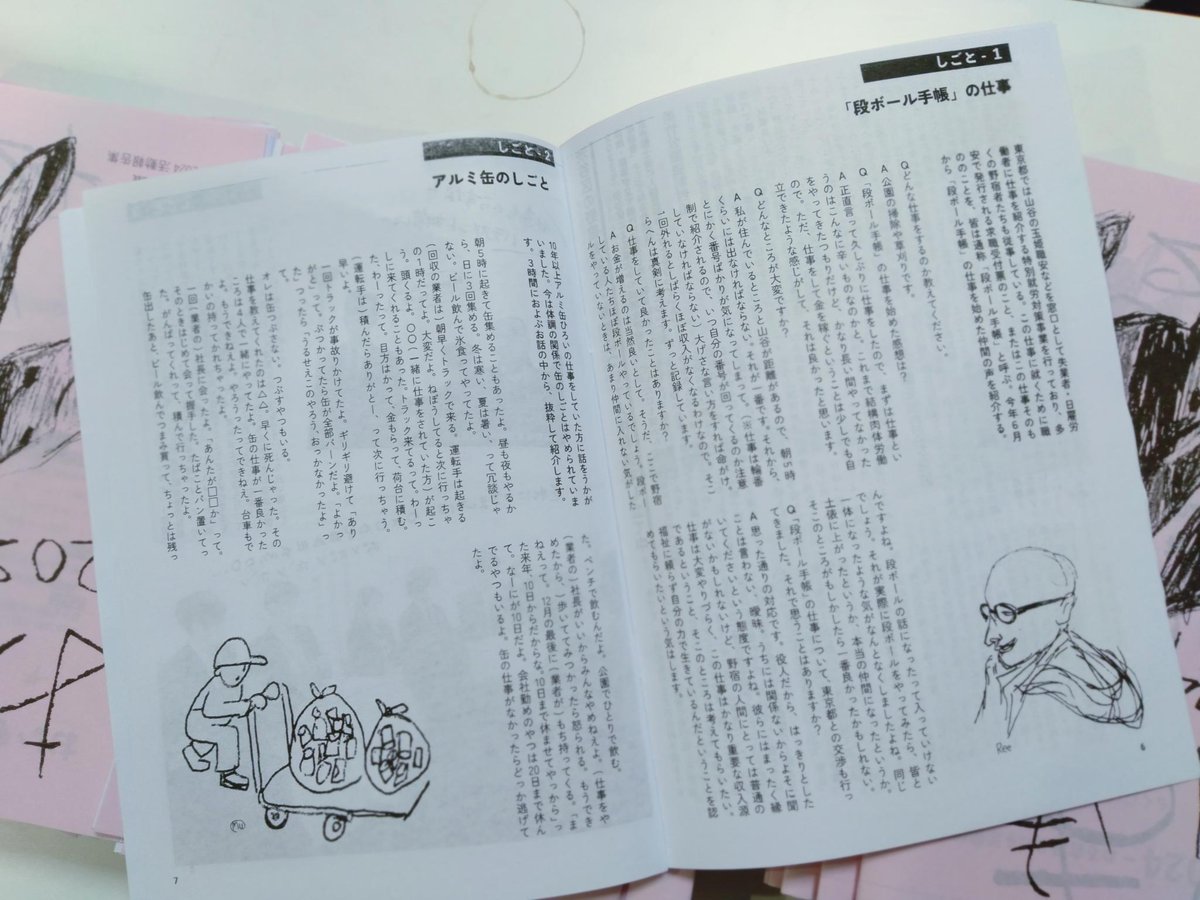 しごと-1
「段ボール手帳」の仕事
東京都では山谷の玉姫職安などを窓口として失業者・日雇労
働者に仕事を紹介する特別就労対策事業を行っており、多
くの野宿者たちも従事している。この仕事に就くために職
安で発行される求職受付票のこと、またはこの仕事そのも
ののことを、皆は通称「段ボール手帳」と呼ぶ。今年6月
から「段ボール手帳」の仕事を始めた仲間の声を紹介する。
Q どんな仕事をするのか教えてください。
A 公園の掃除や草刈りです。
Q「段ボール手帳」の仕事を始めた感想は？
A 正直言って久しぶりに仕事をしたので、まずは仕事とい
うのはこんなに辛いものなのかと、これまで結構肉体労働
をやってきたつもりだけど、かなり長い間やってなかった
ので。ただ、仕事をして金を稼ぐということは少しでも自
立できたような感じがして、それは良かったと思います。
Q どんなところが大変ですか？
A 私が住んでいるところと山谷が距離があるので、朝5時
くらいには出なければならない。それが一番です。それから、
とにかく番号ばかりが気になってしまって。（※仕事は輪番
制で紹介されるので、いつ自分の番号が回ってくるのか注意
していなければならない）大げさな言い方をすれば命がけ。
一回外れるとしばらくほぼ収入がなくなるわけなので、そこ
らへんは真剣に考えます。ずっと記録しています。
Q 仕事をしていて良かったことはありますか？
A お金が増えるのは当然良いとして、そうだ、ここで野宿
している人たちほぼ段ボールやっているでしょう。段ボー
ルをやっていないときは、あまり仲間に入れない気がした
んですよね。段ボールの話になったって入っていけない
でしょう。それが実際に段ボールをやってみたら、皆と
一体になったような気がなんとなくしましたよね。同じ
土俵に上がったというか、本当の仲間になったというか。
そこのところがもしかしたら一番良かったかもしれない。
Q「段ボール手帳」の仕事について、東京都との交渉も行っ
てきました。それで思うことはありますか？
A 思った通りの対応です。役人だから、はっきりとした
ことは言わない、曖昧。うちには関係ないからよそに聞
いてくださいという態度ですよね。彼らにはまったく縁
がないかもしれないけど、野宿の人間にとっては普通の
仕事は大変やりづらく、この仕事はかなり重要な収入源
であるということ、そこのところは考えてもらいたい。
福祉に頼らず自分の力で生きているんだということを認
めてもらいたいという気はします。
Ree
6
しごと-2
アルミ缶のしごと
10年以上アルミ缶ひろいの仕事をしていた方に話をうかが
いました。今は体調の関係で缶のしごとはやめられていま
す。3時間におよぶお話の中から、抜粋して紹介します。
朝5時に起きて缶集めることもあったよ。昼も夜もやるか
ら、一日に3回集める。冬は寒い、夏は暑い、って冗談じゃ
ない。ビール飲んで氷食ってやってたよ。
（回収の業者は）朝早くトラックで来る。運転手は起きる
の1時だってよ。大変だよ。ねぼうしてると次に行っちゃ
う。頭くるよ。〇〇（一緒に仕事をされていた方）が起こ
しに来てくれることもあった、トラック来てるって。わーっ
た、わーったって。目方はかって、金もらって、荷台に積む。
（運転手は）積んだらありがとー、って次に行っちゃう。
早いよ。
一回トラックが事故りかけてたよ。ギリギリ避けて「あり
がと」って。ぶつかってたら缶が全部パーンだよ。「よかっ
た」つったら「うるせえこのやろう、おっかなかったよ」っ
て。
オレは缶つぶさない。つぶすやつもいる。
仕事を教えてくれたのは△△。早くに死んじゃった。その
ころは4人で一緒にやってたよ。缶の仕事が一番良かった
よ。もうできねえよ。やろうたってできねえ。台車もで
かいの持ってかれちゃったよ。
一回（業者の）社長に会ったよ。「あんたが□□か」って。
そのときはじめて会って握手した。たばことパン置いてっ
た。がんばってくれって、積んで行っちゃったよ。
缶出したあと、ビール飲んでつまみ買って、ちょっとは残っ
た。ベンチで飲むんだよ。公園でひとりで飲む。
（業者の）社長がいいからみんなやめねえよ。（仕事をや
めたから、）歩いててみつかったら怒られる。もうでき
ねえって。12月の最後に（業者が）もち持ってくる。「ま
た来年、10日からだからな。10日まで休ませてやっから」っ
て。なーにが10日だよ。会社勤めのやつは20日まで休ん
でるやつもいるよ。缶の仕事がなかったらどっか逃げて
たよ。
7
2024 活動報告集